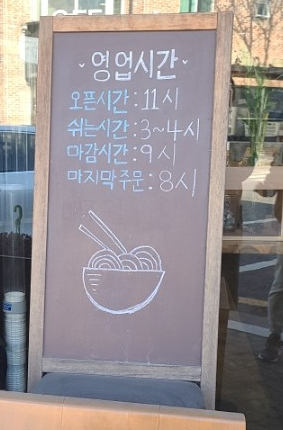 영업시간
오픈시간:11시
쉬는시간:3~4시
마감시간:9시
마지막주문:8시